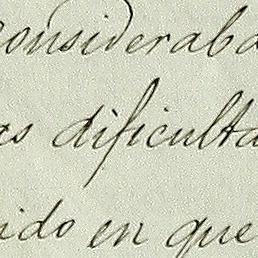 considerab
as dificulta
ido en que